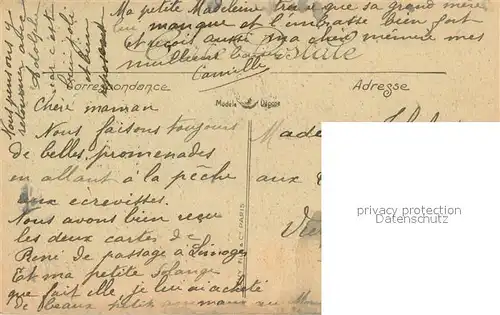 Ma petite Madeleine que sa grand mère
manque et l'embrasse bien fort
et reçois aussi ma chère mémère mes
meilleurs
Camille
nous pensons y
retourner avec
Adolphe
car c'est
bien joli
et bien
Correspondance
Adresse
Modèle Déposé
Chère maman
Nous faisons toujours
de belles promenades
en allant à la pêche
aux écrevisses.
Nous avons bien reçu
les deux cartes de
René de passage à Limoges
Et ma petite Solange
que fait elle, je lui ai acheté
de beaux petits
Made
aux
PARIS
privacy protection
Datenschutz